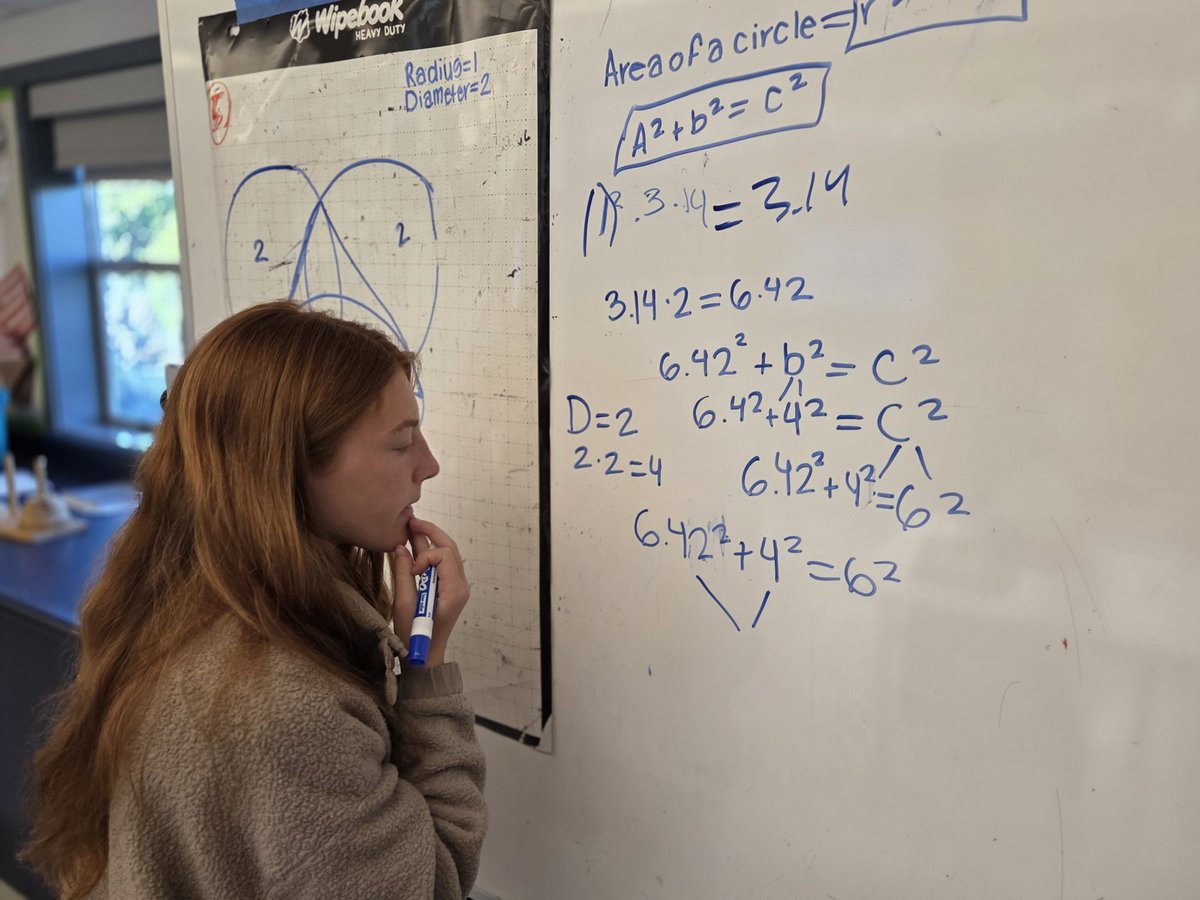 Wipebook
HEAVY DUTY
Radius=1
Diameter=2
2
2
Area of a circle=r
A²+b²=C²
(1)².3.14=3.14
3.14·2=6.42
6.42²+b²=C²
D=2
6.4²+4²=C²
2·2=4
6.42²+4²=6²
6.42²+4²=6²